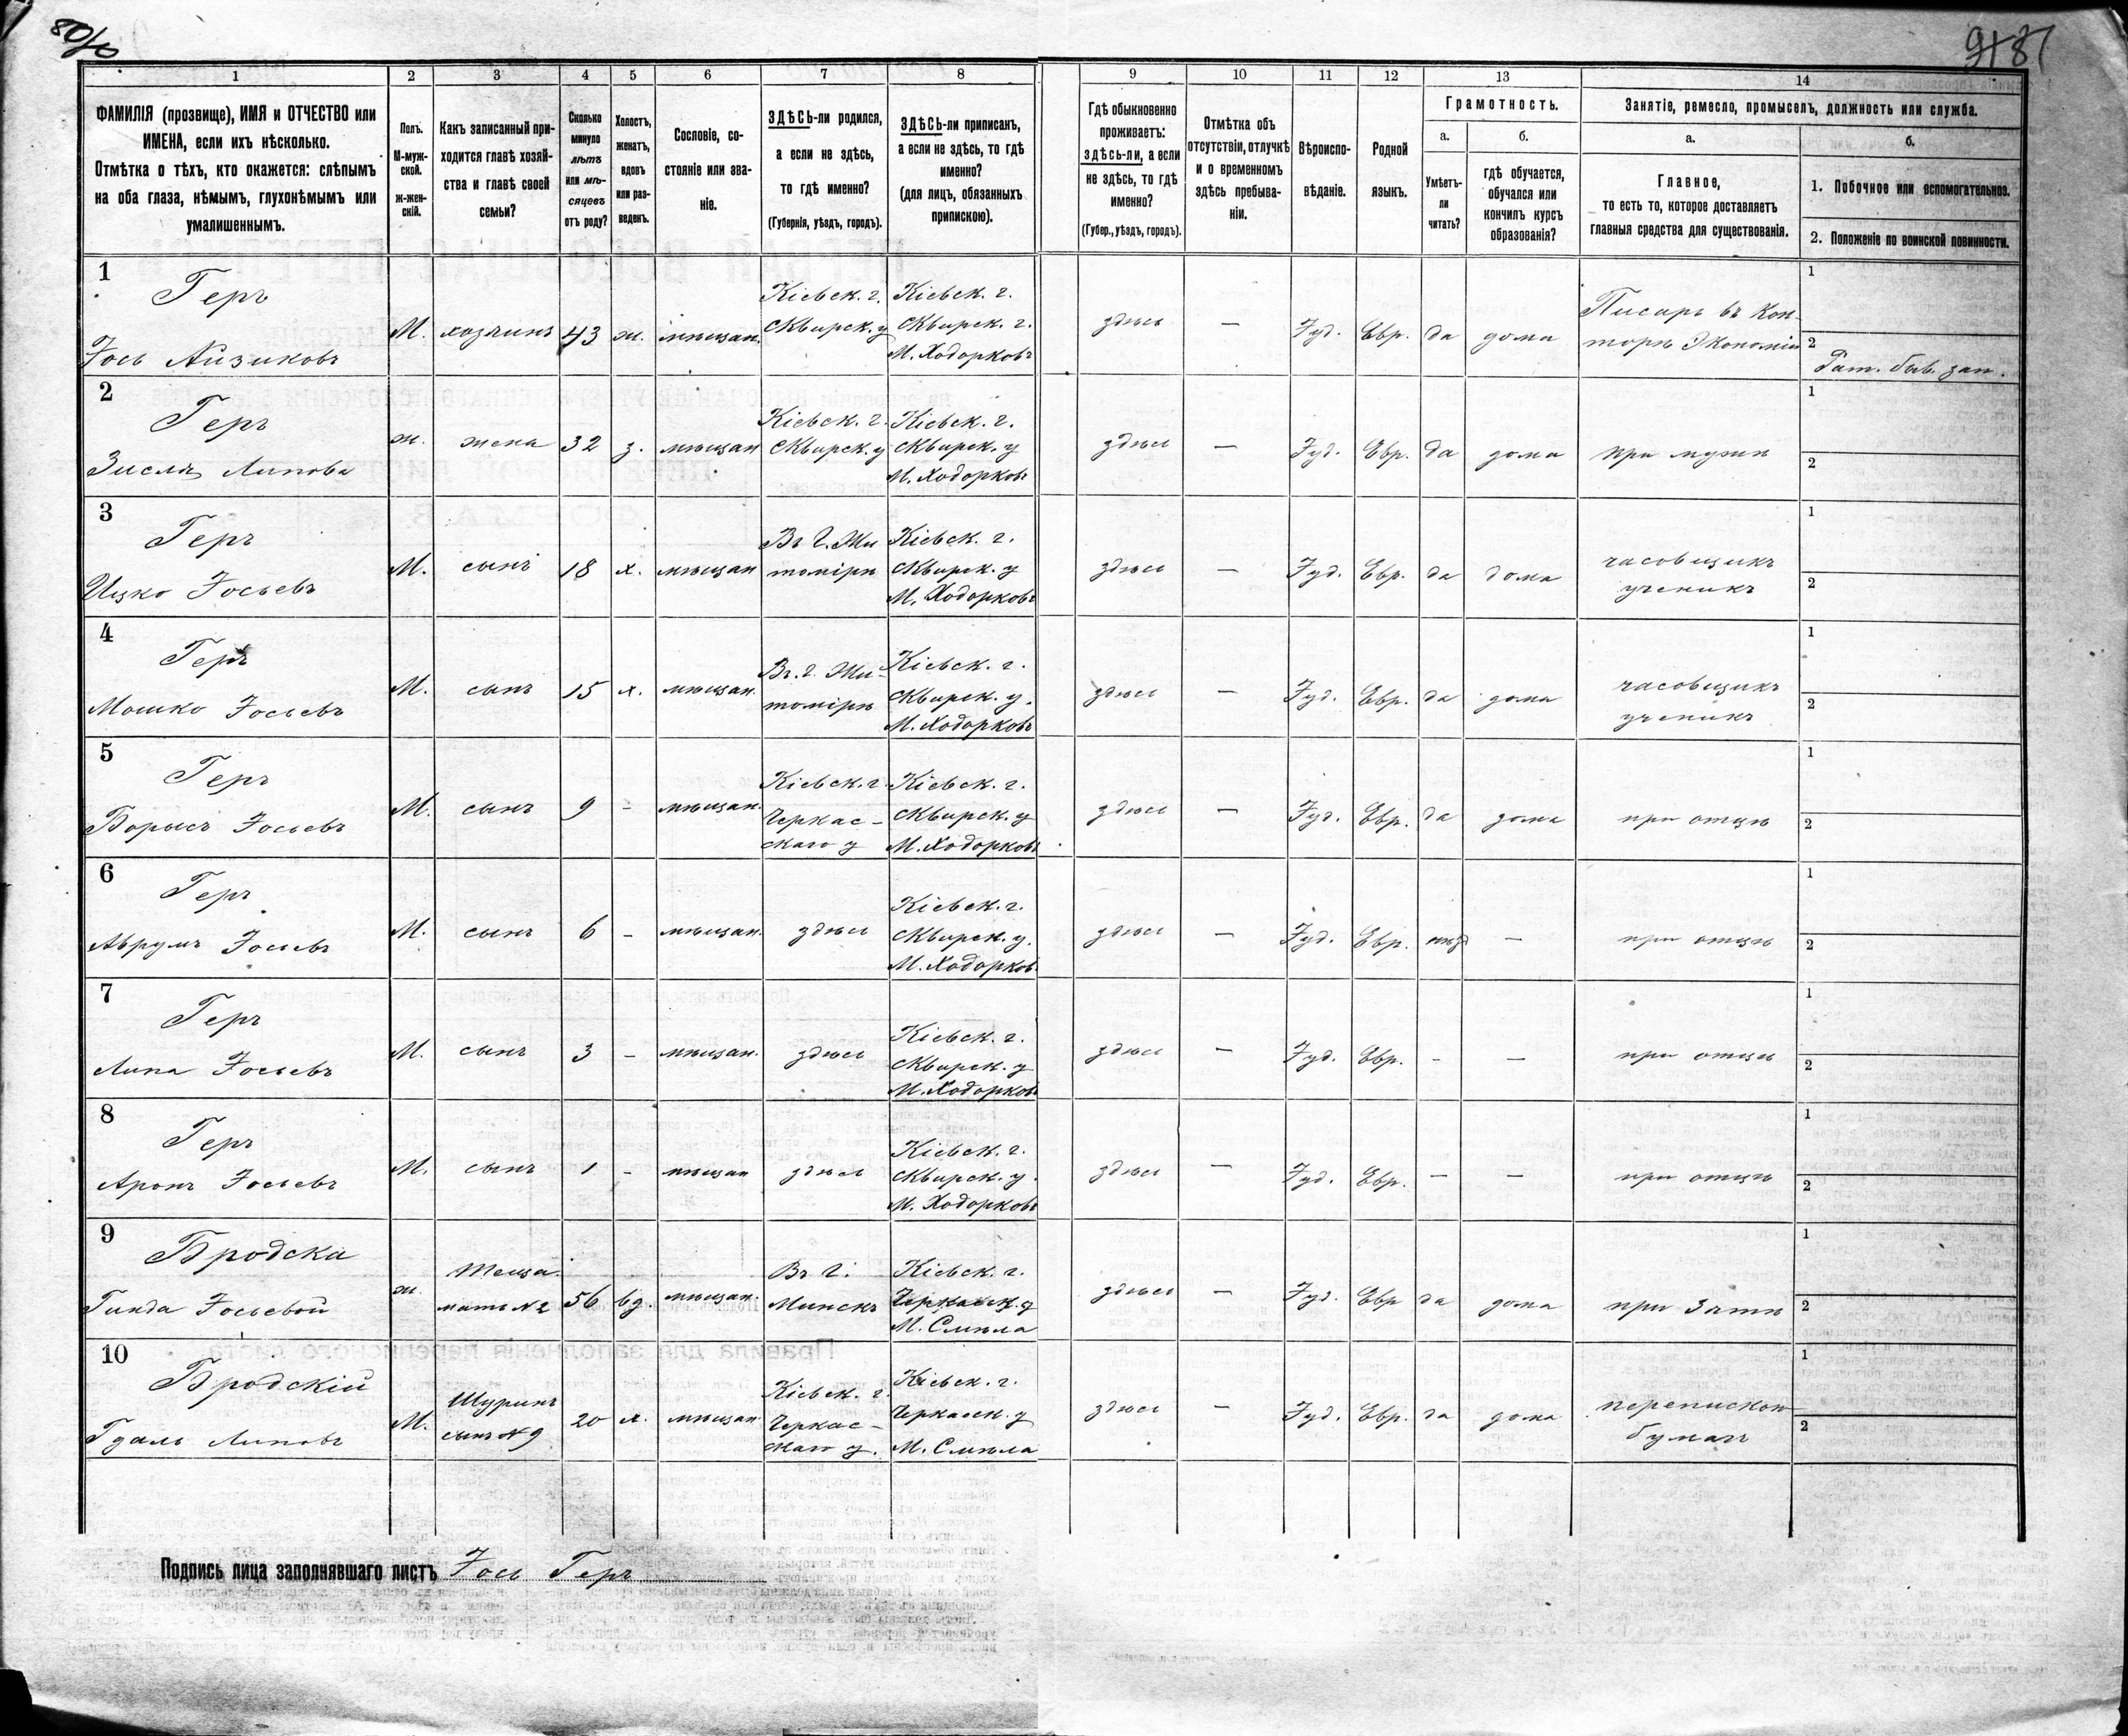 80/0
1
2
3
4
5
6
7
8
9
10
11
12
13
14
ФАМИЛІЯ (прозвище), ИМЯ и ОТЧЕСТВО или
ИМЕНА, если ихъ нѣсколько.
Отмѣтка о тѣхъ, кто окажется: слѣпымъ
на оба глаза, нѣмымъ, глухонѣмымъ или
умалишеннымъ.
Полъ.
М-муж-
ской.
ж-жен-
скій.
Какъ записанный при-
ходится главѣ хозяй-
ства и главѣ своей
семьи?
Сколько
минуло
лѣтъ
или мѣ-
сяцевъ
отъ роду?
Холостъ,
женатъ,
вдовъ
или раз-
веденъ.
Сословіе, со-
стояніе или зва-
ніе.
ЗДѢСЬ-ли родился,
а если не здѣсь,
то гдѣ именно?
(Губернія, уѣздъ, городъ).
ЗДѢСЬ-ли приписанъ,
а если не здѣсь, то гдѣ
именно?
(для лицъ, обязанныхъ
припискою).
Гдѣ обыкновенно
проживаетъ:
здѣсь-ли, а если
не здѣсь, то гдѣ
именно?
(Губер., уѣздъ, городъ).
Отмѣтка объ
отсутствіи, отлучкѣ
и о временномъ
здѣсь пребыва-
ніи.
Вѣроиспо-
вѣданіе.
Родной
языкъ.
Грамотность.
а.
Умѣетъ-
ли
читать?
б.
гдѣ обучается,
обучался или
кончилъ курсъ
образованія?
Занятіе, ремесло, промыселъ, должность или служба.
а.
Главное,
то есть то, которое доставляетъ
главныя средства для существованія.
б.
1. Побочное или вспомогательное.
2. Положеніе по воинской повинности.
1
Геръ
Іось Айзиковъ
М.
хозяинъ
43
ж.
мѣщан.
Кіевск. г.
Сквирск. у
Кіевск. г.
Сквирск. г.
М. Ходорковъ
здѣсь
—
Іуд.
Евр.
да
дома
Писарь въ Кон-
торѣ Экономіи
1
2
Рат. быв. зап.
2
Геръ
Зисля Липова
ж.
жена
32
з.
мѣщан
Кіевск. г.
Сквирск. у
Кіевск. г.
Сквирск. у
М. Ходорковъ
здѣсь
—
Іуд.
Евр.
да
дома
при мужѣ
1
2
3
Геръ
Ицко Іосьевъ
М.
сынъ
18
х.
мѣщан
Въ г. Жи
томірѣ
Кіевск. г.
Сквирск. у
М. Ходорковъ
здѣсь
—
Іуд.
Евр.
да
дома
часовщикъ
ученикъ
1
2
4
Геръ
Мошко Іосьевъ
М.
сынъ
15
х.
мѣщан.
Въ. г. Жи-
томірѣ
Кіевск. г.
Сквирск. у.
М. Ходорковъ
здѣсь
—
Іуд.
Евр.
да
дома
часовщикъ
ученикъ
1
2
5
Геръ
Борысъ Іосьевъ
М.
сынъ
9
-
мѣщан.
Кіевск. г.
Черкас-
скаго у
Кіевск. г.
Сквирск. у
М. Ходорковъ
здѣсь
—
Іуд.
Евр.
да
дома
при отцѣ
1
2
6
Геръ
Аврумъ Іосьевъ
М.
сынъ
6
-
мѣщан.
здѣсь
Кіевск. г.
Сквирск. у.
М. Ходорков
здѣсь
—
Іуд.
Евр.
нѣт
—
при отцѣ
1
2
7
Геръ
Липа Іосьевъ
М.
сынъ
3
-
мѣщан.
здѣсь
Кіевск. г.
Сквирск. у
М. Ходорковъ
здѣсь
—
Іуд.
Евр.
-
—
при отцѣ
1
2
8
Геръ
Аронъ Іосьевъ
М.
сынъ
1
-
мѣщан
здѣсь
Кіевск. г.
Сквирск. у.
М. Ходорковъ
здѣсь
—
Іуд.
Евр.
—
—
при отцѣ
1
2
9
Бродска
Гинда Іосьевой
ж.
Теща.
мать №2
56
вд.
мѣщан.
Въ г.
Минскъ
Кіевск. г.
Черкасск. у
М. Смѣла
здѣсь
—
Іуд.
Евр
да
дома
при Зятѣ
1
2
10
Бродскій
Гдаль Липовъ
М.
Шуринъ
сынъ №9
20
х.
мѣщан
Кіевск. г.
Черкас-
скаго у.
Кіевск. г.
Черкасск. у
М. Смѣла
здѣсь
—
Іуд.
Евр.
да
дома
перепискою
бумагъ
1
2
Подпись лица заполнявшаго листъ Іось Геръ